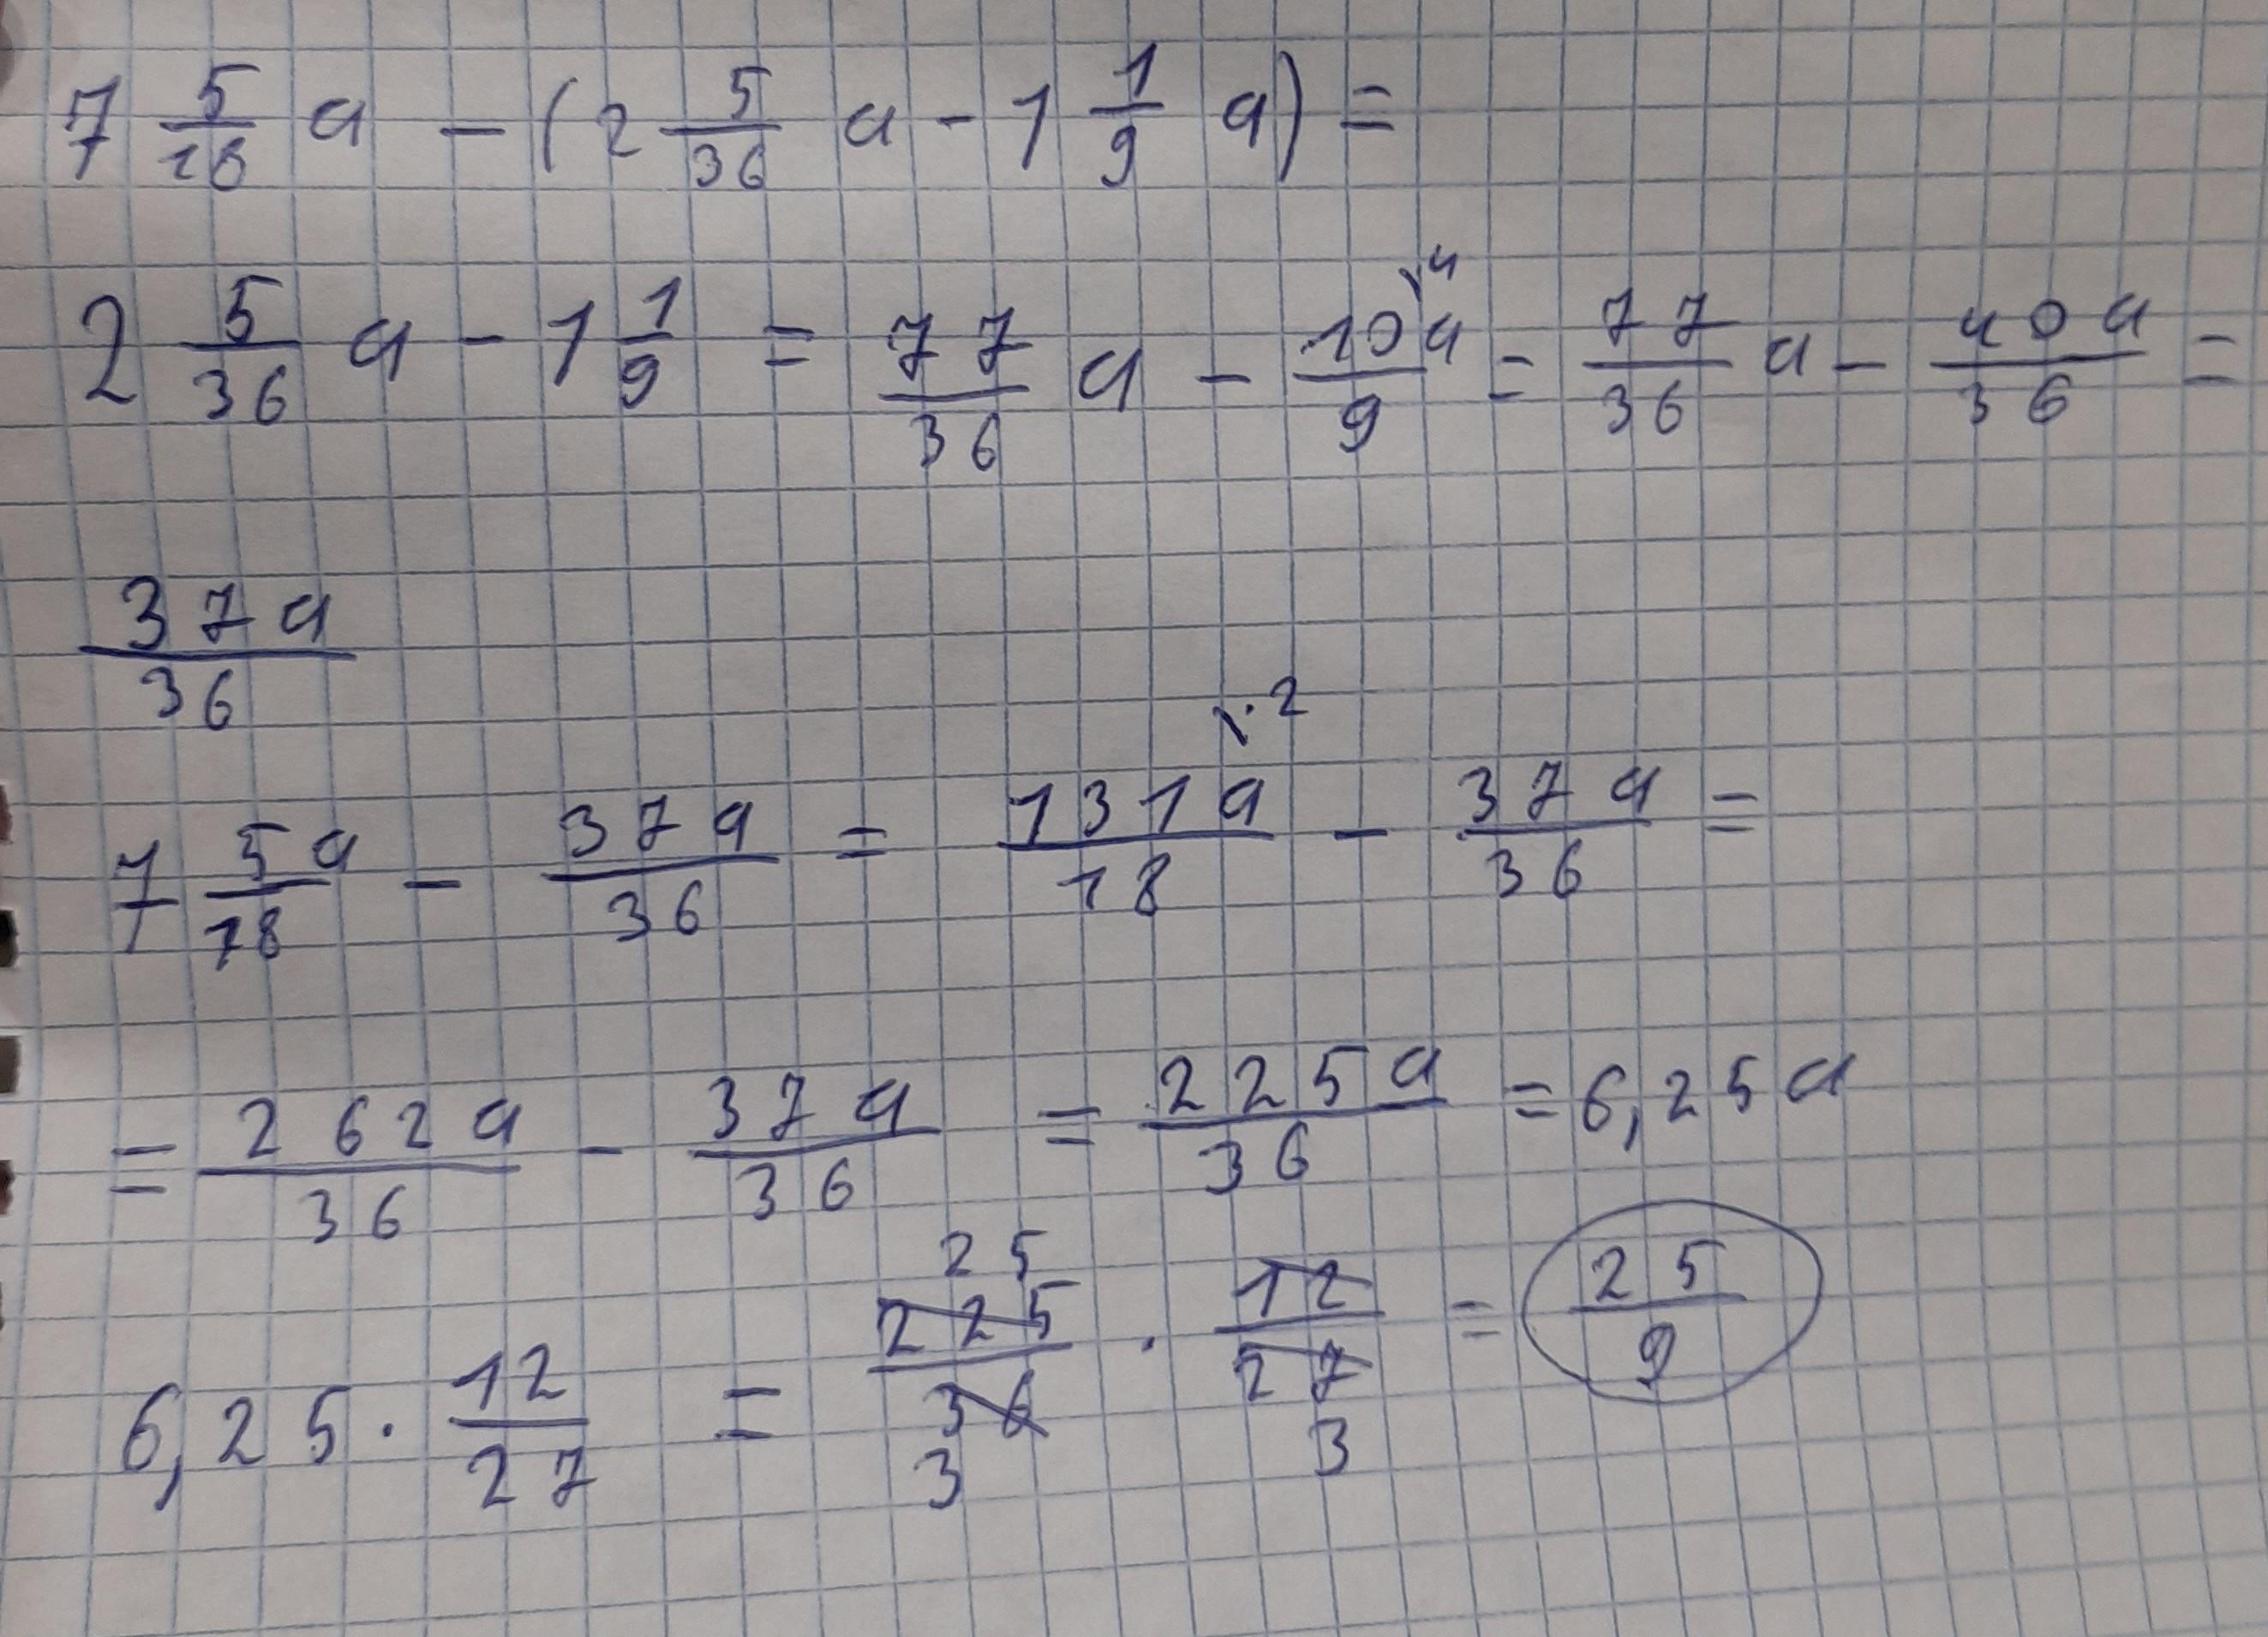 7 5/18 a - (2 5/36 a - 1 1/9 a) =
2 5/36 a - 1 1/9 = 77/36 a - 10a/9 \4 = 77/36 a - 40a/36 =
37a/36
7 5a/18 - 37a/36 = 131a/18 \·2 - 37a/36 =
= 262a/36 - 37a/36 = 225a/36 = 6,25a
6,25 · 12/27 = 225/36 25 3 · 12/27 3 = 25/9